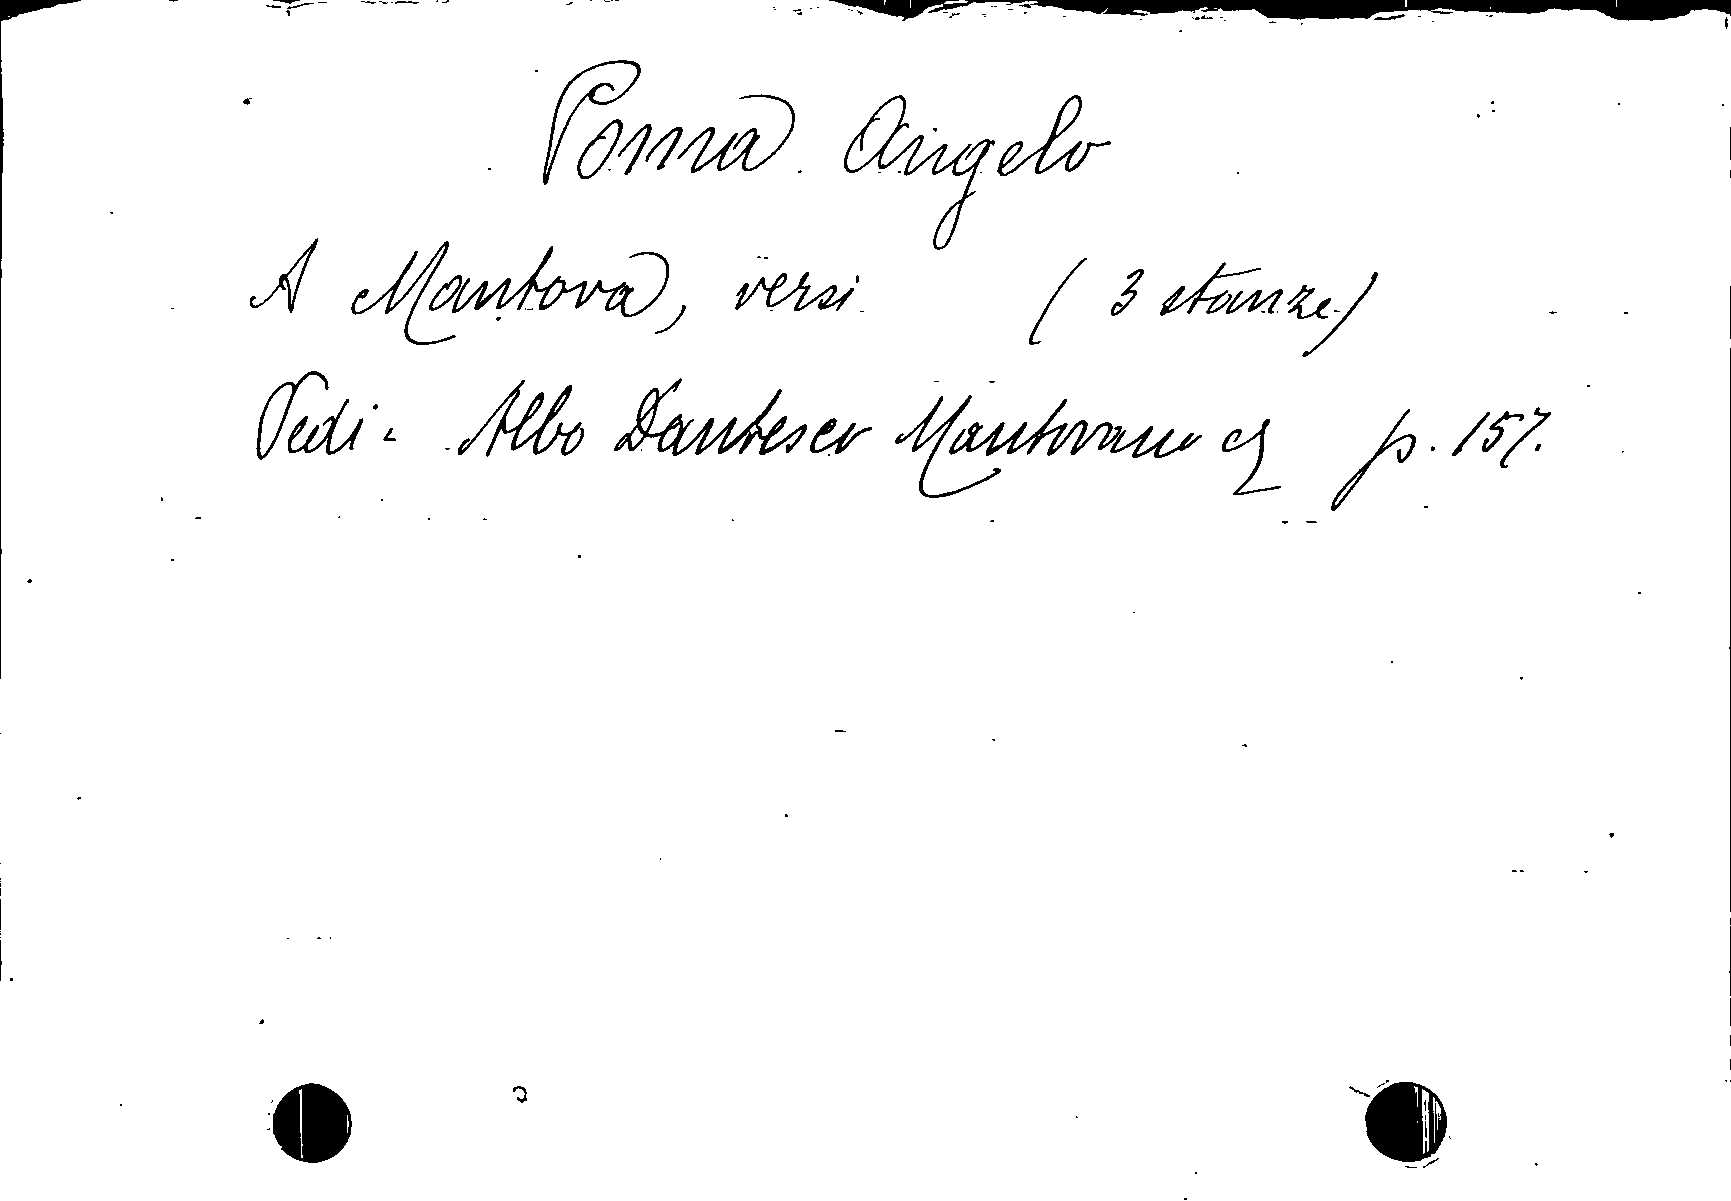 Poma Angelo
A Mantova, versi (3 stanze)
Vedi: Albo Dantesco Mantovano p. 157.